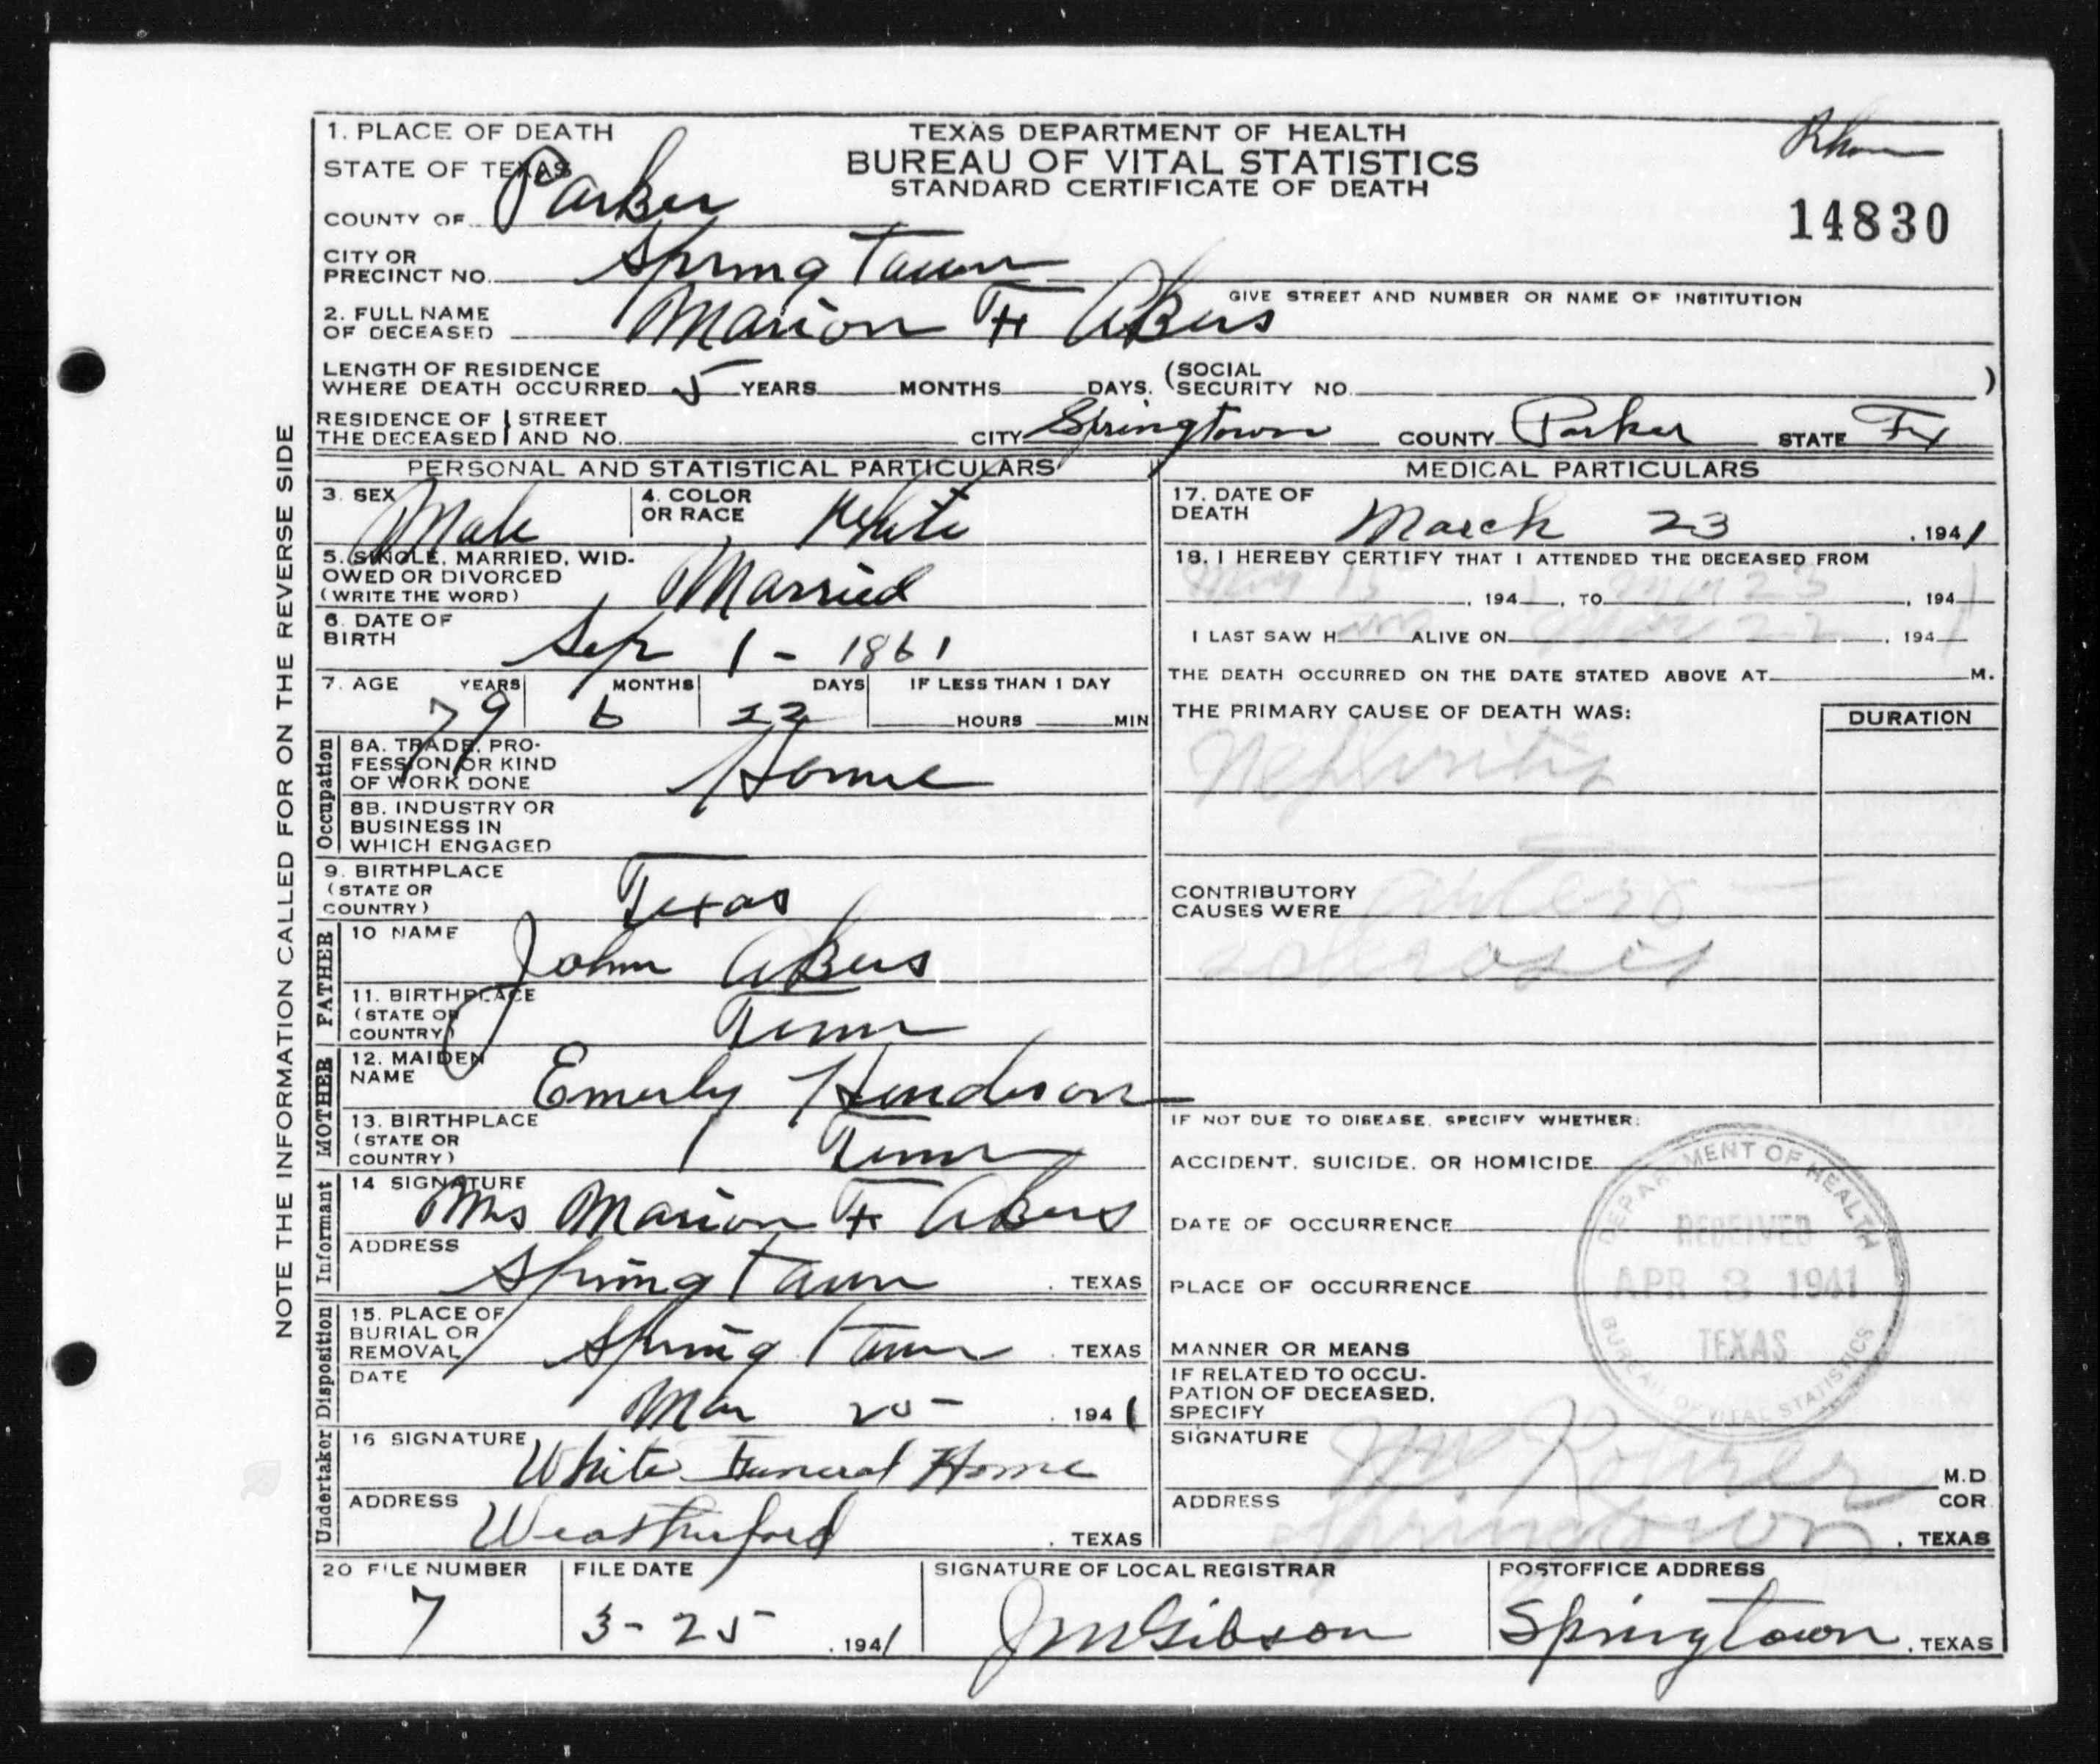 1. PLACE OF DEATH
STATE OF TEXAS
COUNTY OF Parker
TEXAS DEPARTMENT OF HEALTH
BUREAU OF VITAL STATISTICS
STANDARD CERTIFICATE OF DEATH
14830
CITY OR
PRECINCT NO. Spring Town
GIVE STREET AND NUMBER OR NAME OF INSTITUTION
2. FULL NAME
OF DECEASED Marion F Akers
LENGTH OF RESIDENCE
WHERE DEATH OCCURRED 5 YEARS MONTHS DAYS. (SOCIAL SECURITY NO. )
RESIDENCE OF THE DECEASED STREET AND NO. CITY Springtown COUNTY Parker STATE Tx
NOTE THE INFORMATION CALLED FOR ON THE REVERSE SIDE
PERSONAL AND STATISTICAL PARTICULARS
3. SEX Male 4. COLOR OR RACE White
5. SINGLE, MARRIED, WIDOWED OR DIVORCED
(WRITE THE WORD) Married
6. DATE OF
BIRTH Sep 1 - 1861
7. AGE YEARS MONTHS DAYS IF LESS THAN 1 DAY
79 6 22 HOURS MIN
Occupation
8A. TRADE, PRO-
FESSION OR KIND
OF WORK DONE Home
8B. INDUSTRY OR
BUSINESS IN
WHICH ENGAGED
9. BIRTHPLACE
(STATE OR
COUNTRY) Texas
FATHER
10 NAME John Akers
11. BIRTHPLACE
(STATE OR
COUNTRY) Tenn
MOTHER
12. MAIDEN
NAME Emerly Henderson
13. BIRTHPLACE
(STATE OR
COUNTRY) Tenn
Informant
14 SIGNATURE
Mrs Marion F Akers
ADDRESS
Spring Town . TEXAS
Disposition
15. PLACE OF
BURIAL OR
REMOVAL Spring Town . TEXAS
DATE
Mar 25 - . 1941
Undertaker
16 SIGNATURE White Funeral Home
ADDRESS
Weatherford . TEXAS
MEDICAL PARTICULARS
17. DATE OF
DEATH March 23 , 1941
18. I HEREBY CERTIFY THAT I ATTENDED THE DECEASED FROM
15 , 1941, TO Mar 23 , 1941
I LAST SAW H im ALIVE ON Mar 22 , 1941
THE DEATH OCCURRED ON THE DATE STATED ABOVE AT M.
THE PRIMARY CAUSE OF DEATH WAS: DURATION
Nephritis
CONTRIBUTORY
CAUSES WERE Artero
sclerosis
IF NOT DUE TO DISEASE, SPECIFY WHETHER:
ACCIDENT, SUICIDE, OR HOMICIDE
DATE OF OCCURRENCE
PLACE OF OCCURRENCE
MANNER OR MEANS
IF RELATED TO OCCU-
PATION OF DECEASED,
SPECIFY
DEPARTMENT OF HEALTH
RECEIVED
APR 3 1941
TEXAS
BUREAU OF VITAL STATISTICS
SIGNATURE M.D
COR
ADDRESS Springtown . TEXAS
20 FILE NUMBER FILE DATE SIGNATURE OF LOCAL REGISTRAR POSTOFFICE ADDRESS
7 3-25 , 1941 J M Gibson Springtown , TEXAS